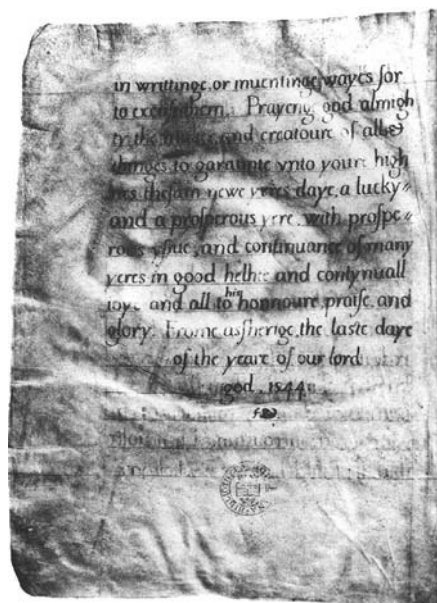 in writtinge, or inuentinge wayes for
to excuse them. Prayeng god almigh
ty the maker and creatoure of alle
thinges to garaunte vnto youre high
nes thesam newe yeres daye, a lucky〃
and a prosperous yere with prospe〃
rous yssue, and continuance of many
yeres in good helthe and contynuall
ioye and all to his honnoure, praise, and
glory. Frome assherige, the laste daye
of the yeare of our lord
god. 1544